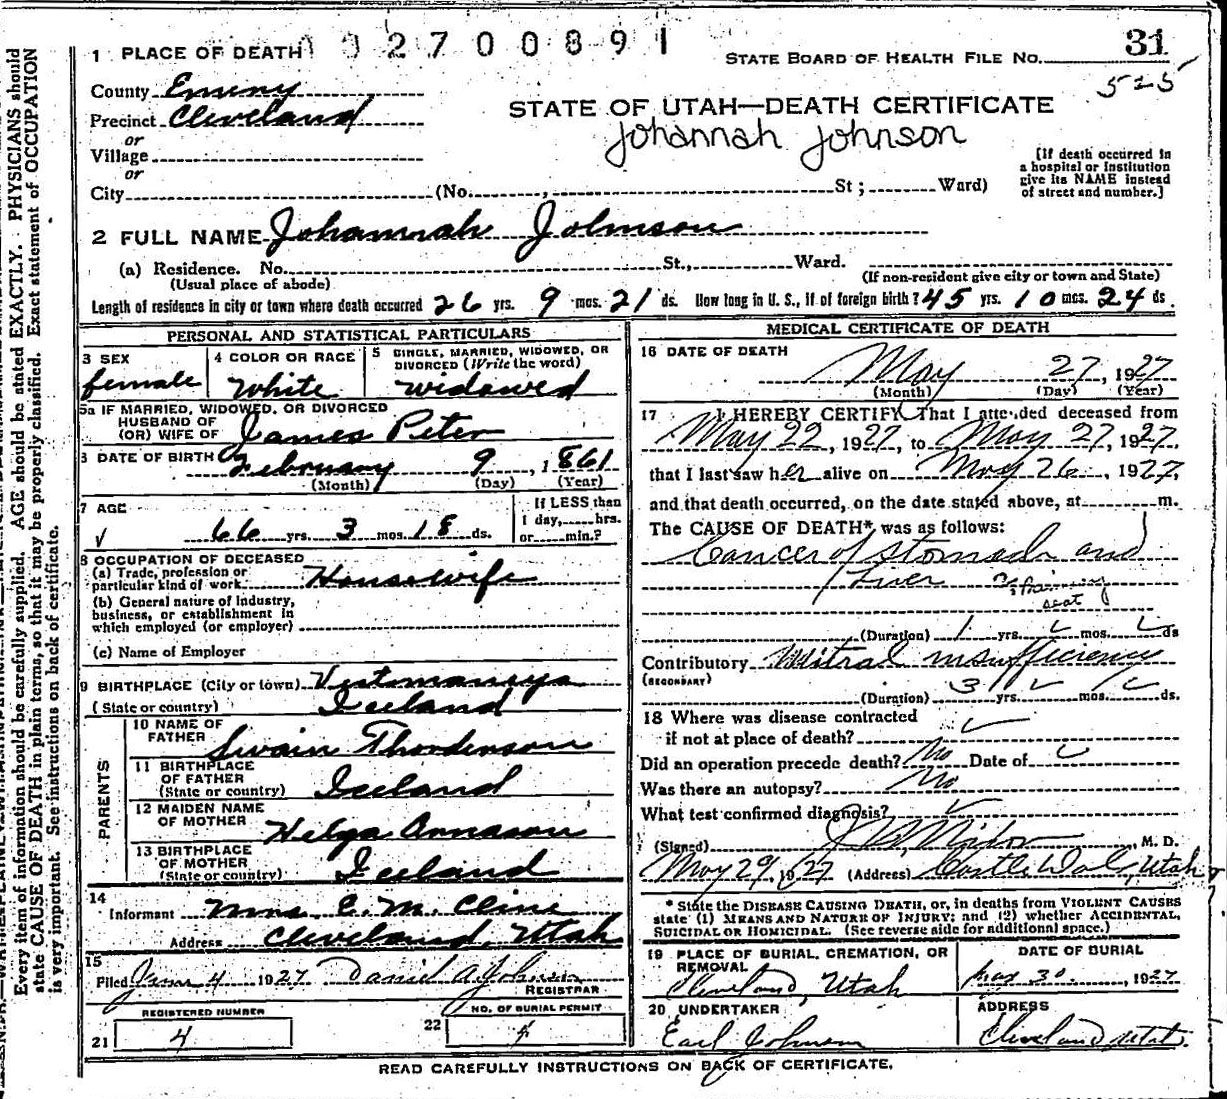 1 PLACE OF DEATH 2 7 0 0 8 9 1
STATE BOARD OF HEALTH FILE NO. 31
525
County Emery
Precinct Cleveland
or
Village
or
City (No. St; Ward)
STATE OF UTAH—DEATH CERTIFICATE
Johannah Johnson
[If death occurred in
a hospital or institution
give its NAME instead
of street and number.]
2 FULL NAME Johannah Johnson
(a) Residence. No. St., Ward.
(Usual place of abode) (If non-resident give city or town and State)
Length of residence in city or town where death occurred 26 yrs. 9 mos. 21 ds. How long in U. S., if of foreign birth? 45 yrs. 10 mos. 24 ds.
PERSONAL AND STATISTICAL PARTICULARS
3 SEX
female
4 COLOR OR RACE
White
5 SINGLE, MARRIED, WIDOWED, OR
DIVORCED (Write the word)
widowed
5a IF MARRIED, WIDOWED, OR DIVORCED
HUSBAND OF
(OR) WIFE OF James Peter
6 DATE OF BIRTH February 9, 1861
(Month) (Day) (Year)
7 AGE
66 yrs. 3 mos. 18 ds.
If LESS than
1 day, hrs.
or min.?
8 OCCUPATION OF DECEASED
(a) Trade, profession or
particular kind of work Housewife
(b) General nature of industry,
business, or establishment in
which employed (or employer)
(c) Name of Employer
9 BIRTHPLACE (City or town) Vestmaneya
(State or country) Iceland
PARENTS
10 NAME OF
FATHER Swain Thordenson
11 BIRTHPLACE
OF FATHER
(State or country) Iceland
12 MAIDEN NAME
OF MOTHER Helga Annason
13 BIRTHPLACE
OF MOTHER
(State or country) Iceland
14
Informant Mrs E. M. Cline
Address Cleveland, Utah
15
Filed June 4 1927 Daniel A. Johnson
REGISTRAR
REGISTERED NUMBER
21 4
NO. OF BURIAL PERMIT
22 4
MEDICAL CERTIFICATE OF DEATH
16 DATE OF DEATH
May 27, 1927
(Month) (Day) (Year)
17 I HEREBY CERTIFY, That I attended deceased from
May 22, 1927, to May 27, 1927,
that I last saw her alive on May 26, 1927,
and that death occurred, on the date stated above, at m.
The CAUSE OF DEATH* was as follows:
Cancer of stomach and
Liver
seat
(Duration) 1 yrs. mos. ds
Contributory Mitral insufficiency
(SECONDARY)
(Duration) 3 yrs. mos. ds.
18 Where was disease contracted
if not at place of death?
Did an operation precede death? No Date of
Was there an autopsy? No
What test confirmed diagnosis?
(Signed) , M. D.
May 29, 1927 (Address) Castle Dale, Utah
* State the DISEASE CAUSING DEATH, or, in deaths from VIOLENT CAUSES
state (1) MEANS AND NATURE OF INJURY; and (2) whether ACCIDENTAL,
SUICIDAL OR HOMICIDAL. (See reverse side for additional space.)
19 PLACE OF BURIAL, CREMATION, OR
REMOVAL
Cleveland, Utah
DATE OF BURIAL
May 30, 1927
20 UNDERTAKER
Earl Johnson
ADDRESS
Cleveland Utah.
READ CAREFULLY INSTRUCTIONS ON BACK OF CERTIFICATE.
Every item of information should be carefully supplied. AGE should be stated EXACTLY. PHYSICIANS should
state CAUSE OF DEATH in plain terms, so that it may be properly classified. Exact statement of OCCUPATION
is very important. See instructions on back of certificate.